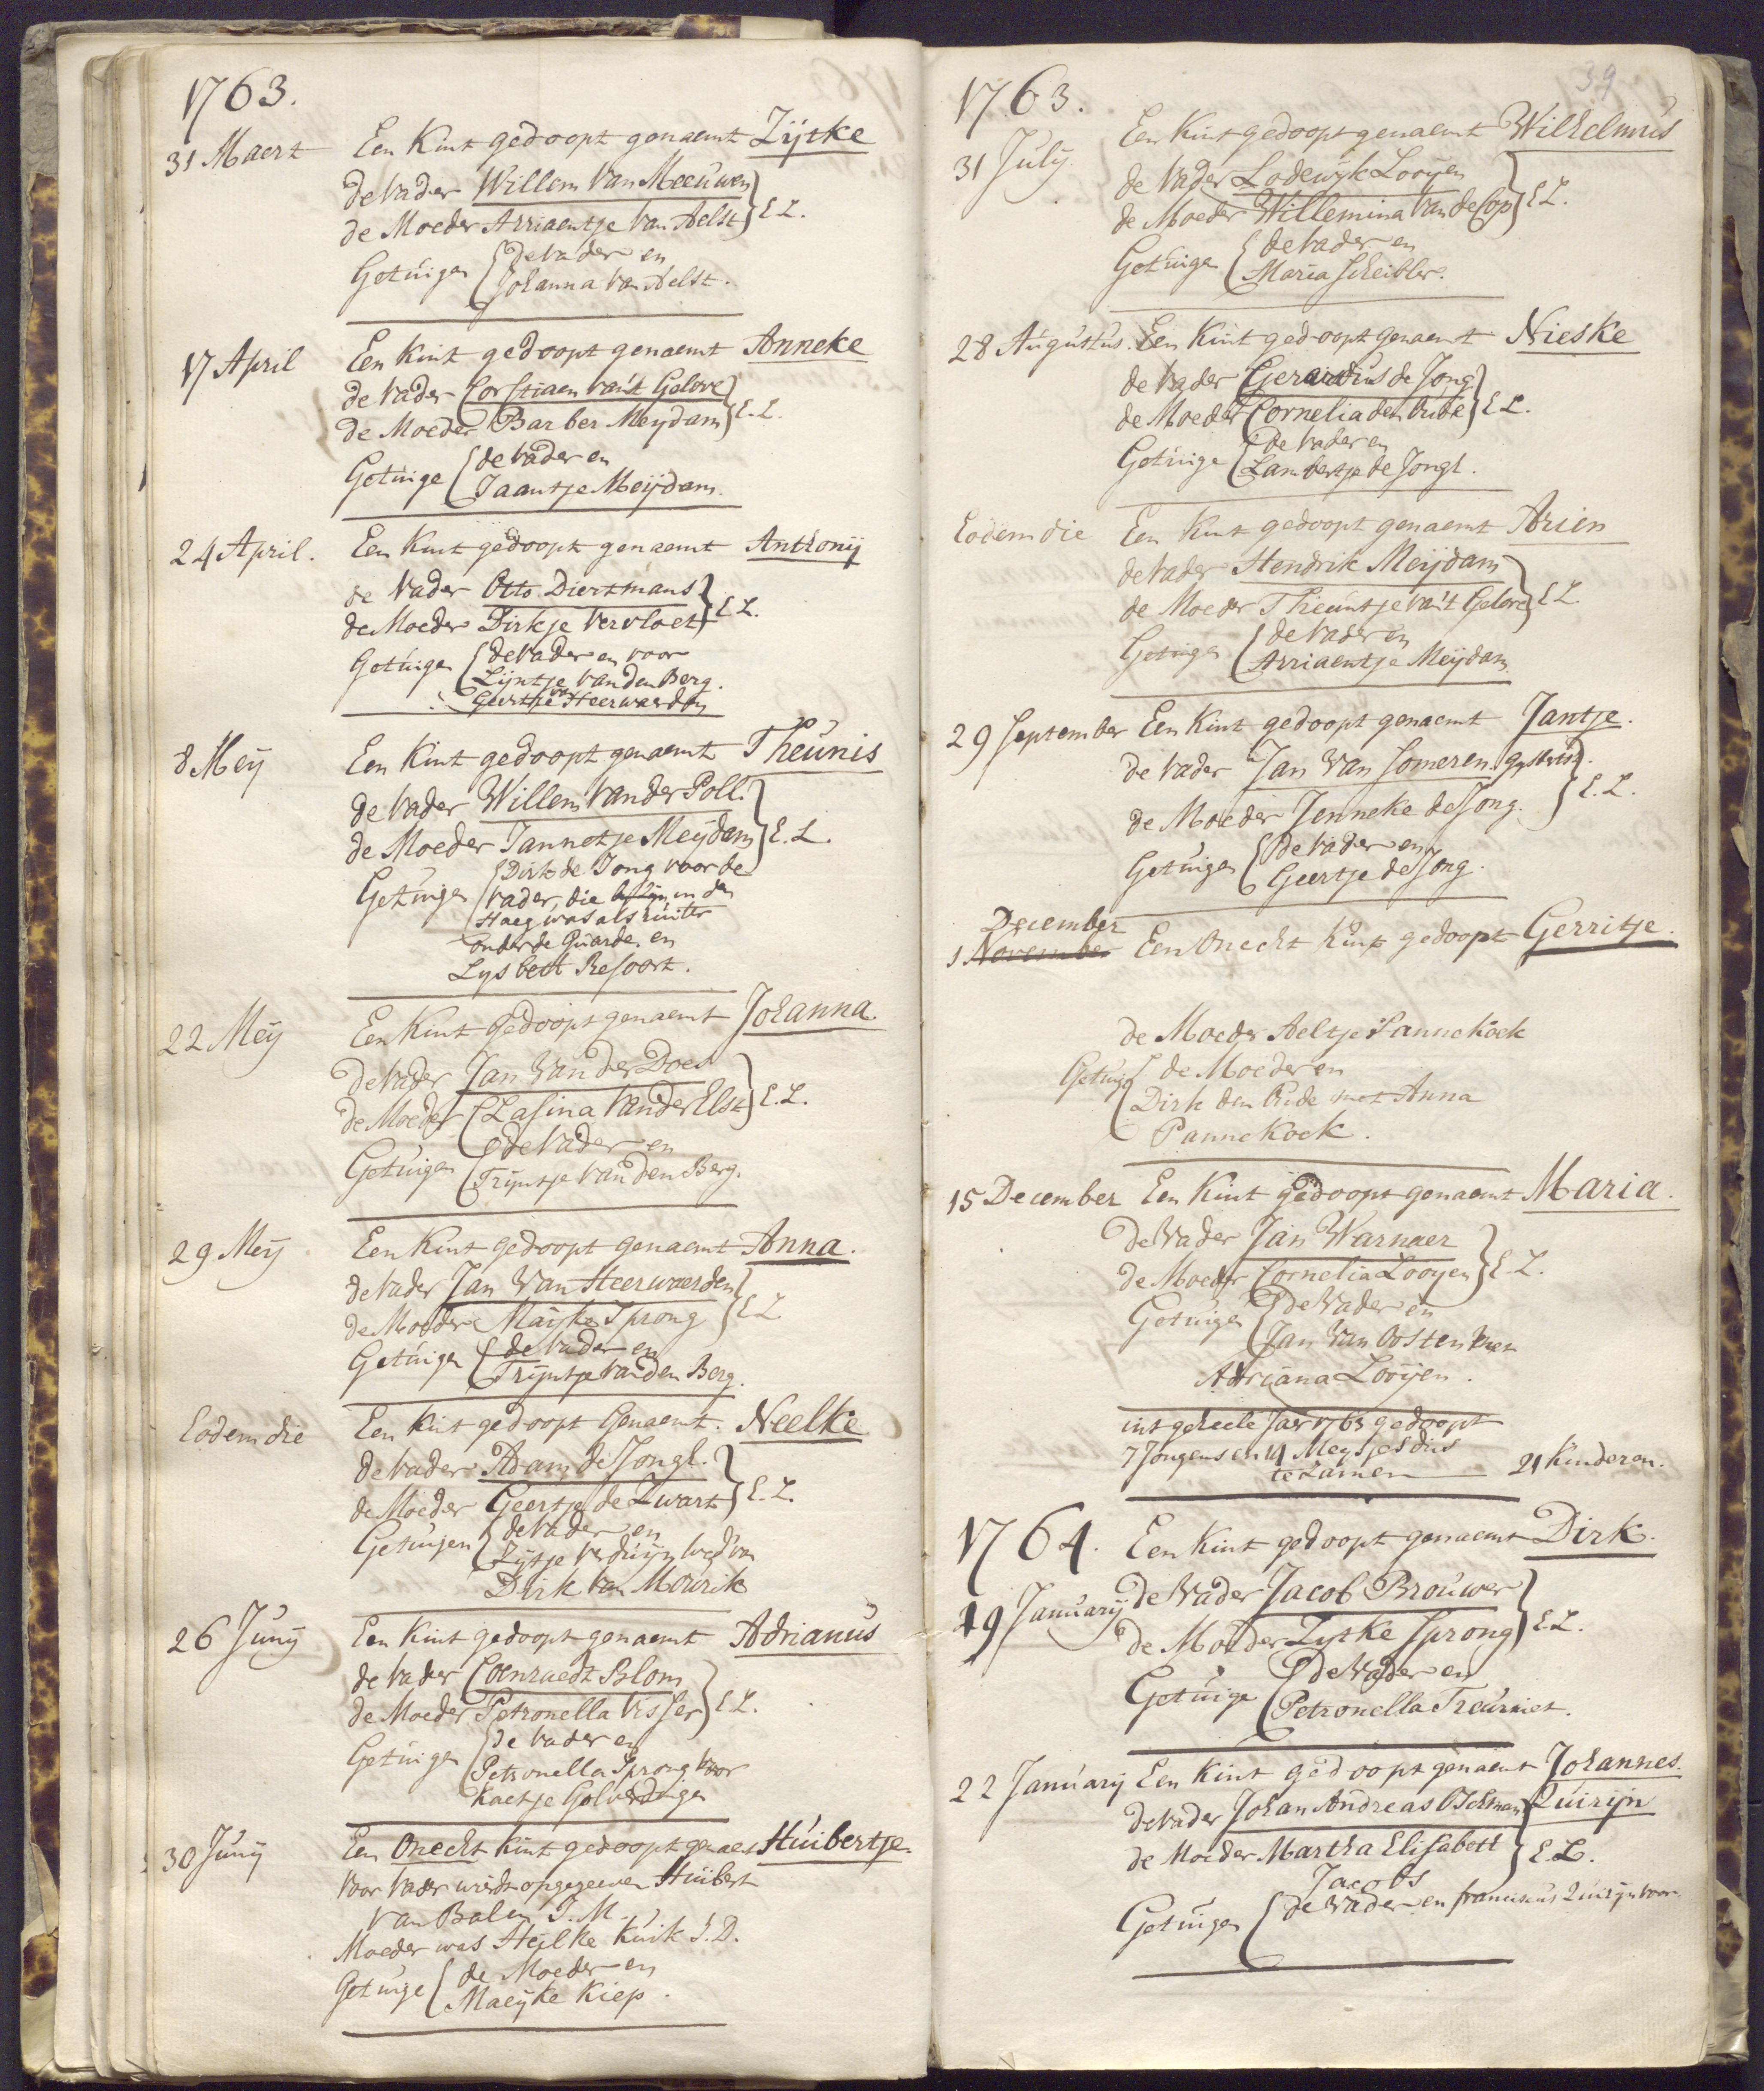 1763.
31 Maert Een Kint gedoopt genaemt Zijtke
de Vader Willem Van Meeuwen
de Moeder Arriaentje Van Aelst } E L.
Getuigen { de Vader en
Johanna Van Aelst.
17 April Een Kint gedoopt genaemt Anneke
de Vader Corstiaen van't Gelove
de Moeder Barber Meydam } E. L.
Getuige { de Vader en
Jaantje Meijdam.
24 April. Een Kint gedoopt genaemt Anthonij
de Vader Otto Diertmans
de Moeder Dirkje Vervloet } E L.
Getuigen { de Vader en voor
Lijntje van den Berg.
Geertje van Heerwaerden
8 Meij Een Kint gedoopt genaemt Theunis
de Vader Willem Van der Poll.
de Moeder Jannetje Meijdam } E. L.
Getuigen { Dirk de Jong voor de
Vader, die in den
Haeg was als ruiter
onder de Guarde en
Lysbeth Resoort.
22 Meij Een Kint gedoopt genaemt Johanna.
de Vader Jan Van der Does
de Moeder Clasina Van der Elst } E. L.
Getuigen { de Vader en
Trijntje Van den Berg.
29 Meij Een Kint gedoopt genaemt Anna.
de Vader Jan Van Heerwaerden
de Moeder Maijke Sprong } E L
Getuigen { de Vader en
Trijntje Van den Berg.
Eodem die Een Kint gedoopt Genaemt. Neelke
de Vader Adam de Jongl.
de Moeder Geertje de Zwart } E. L.
Getuigen { de Vader en
Zijtje Verduijn wed van
Dirk Van Mourik
26 Junij Een Kint gedoopt genaemt Adrianus
de Vader Coenraedt Blom
de Moeder Petronella Visser } E L.
Getuigen { de Vader en
Petronella Sprong voor
Kaetje Golverdingen
30 Junij Een Onecht Kint gedoopt genaemt Huibertje
Voor Vader wierdt opgegeeven Huibert
van Balen J. M.
Moeder was Heilke Kuik J. D.
Getuige { de Moeder en
Maeijke Kiep.
39
1763.
31 Julij. Een Kint gedoopt genaemt Wilhelmus
de Vader Lodewijk Looijen
de Moeder Willemina Van de Cop } E L.
Getuige { de Vader en
Maria Scheibler.
28 Augustus. Een Kint gedoopt genaemt Nieske
de Vader Gerardus de Jong
de Moeder Cornelia den Oude } E L.
Getuige { de Vader en
Lambertje de Jongl.
Eodem die Een Kint gedoopt genaemt Arien
de Vader Hendrik Meijdam
de Moeder Theuntje van't Gelove } E L.
Getuigen { de Vader en
Arriaentje Meijdam
29 September Een Kint gedoopt genaemt Jantje.
de Vader Jan Van Someren
de Moeder Jenneke de Jong. } E. L.
Getuigen { de Vader en
Geertje de Jong.
December
1 November Een Onecht Kint gedoopt Gerritje.
de Moeder Aeltje Pannekoek
Getuige { de Moeder en
Dirk den Oude met Anna
Pannekoek.
15 December Een Kint gedoopt genaemt Maria.
de Vader Jan Warnaer
de Moeder Cornelia Looijen } E. L.
Getuigen { de Vader en
Jan Van Oosten met
Adriana Looijen.
int geheele Jaer 1763 gedoopt
7 Jongens en 14 Meysjes dus
te samen 21 Kinderen.
1764. Een Kint gedoopt genaemt Dirk.
19 January de Vader Jacob Brouwer
de Moeder Zytke Sprong } E. L.
Getuige { de Vader en
Petronella Treurniet.
22 Januarij Een Kint gedoopt genaemt Johannes.
de Vader Johan Andreas Oehman Quirijn
de Moeder Martha Elisabeth } E. L.
Jacobs
Getuigen { de Vader en franciscus Quirijn voor